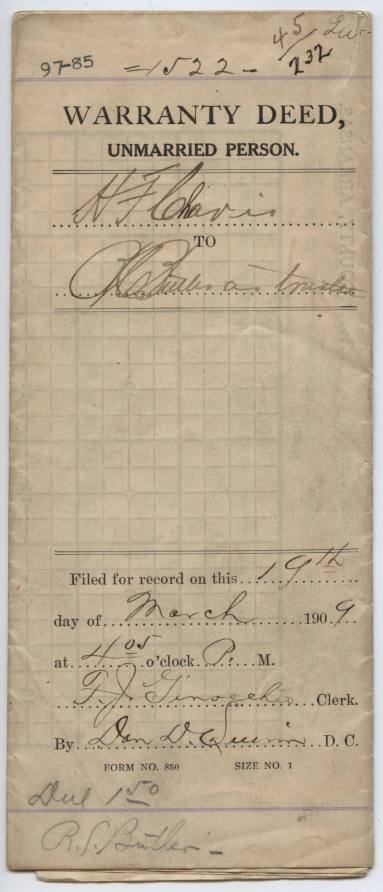 45/232
97-85 =1522-
WARRANTY DEED,
UNMARRIED PERSON.
H F Chavis
TO
as trustee
Filed for record on this 19th
day of March 1909
at 4 05 o'clock P. M.
F. J. Ginocchio Clerk.
By Dan D. Quinn D. C.
FORM NO. 850 SIZE NO. 1
Due 1 50
R. S. Butler -